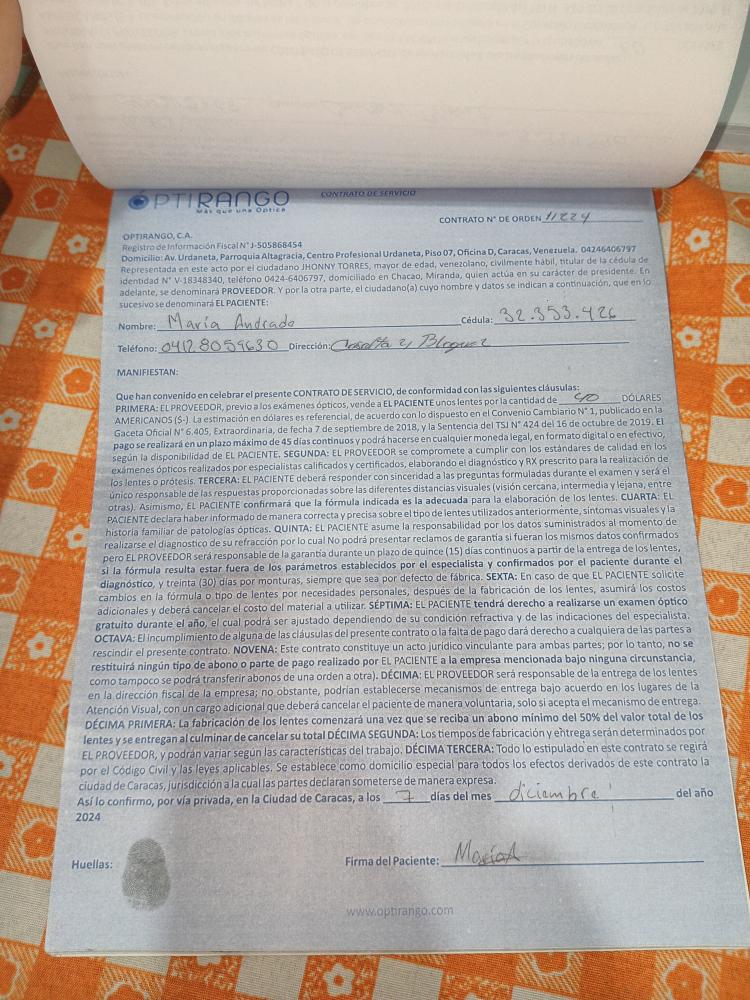 OPTIRANGO
Más que una Óptica
CONTRATO DE SERVICIO
CONTRATO N° DE ORDEN 11224
OPTIRANGO, C.A.
Registro de Información Fiscal N° J-505868454
Domicilio: Av. Urdaneta, Parroquia Altagracia, Centro Profesional Urdaneta, Piso 07, Oficina D, Caracas, Venezuela. 04246406797
Representada en este acto por el ciudadano JHONNY TORRES, mayor de edad, venezolano, civilmente hábil, titular de la cédula de
identidad N° V-18348340, teléfono 0424-6406797, domiciliado en Chacao, Miranda, quien actúa en su carácter de presidente. En
adelante, se denominará PROVEEDOR. Y por la otra parte, el ciudadano(a) cuyo nombre y datos se indican a continuación, que en lo
sucesivo se denominará EL PACIENTE:
Nombre: María Andrade Cédula: 32.353.426
Teléfono: 04128059630 Dirección: Casalta 2, Bloque 2
MANIFIESTAN:
Que han convenido en celebrar el presente CONTRATO DE SERVICIO, de conformidad con las siguientes cláusulas:
PRIMERA: EL PROVEEDOR, previo a los exámenes ópticos, vende a EL PACIENTE unos lentes por la cantidad de 40 DÓLARES
AMERICANOS ($-). La estimación en dólares es referencial, de acuerdo con lo dispuesto en el Convenio Cambiario N° 1, publicado en la
Gaceta Oficial N° 6.405, Extraordinaria, de fecha 7 de septiembre de 2018, y la Sentencia del TSJ N° 424 del 16 de octubre de 2019. El
pago se realizará en un plazo máximo de 45 días continuos y podrá hacerse en cualquier moneda legal, en formato digital o en efectivo,
según la disponibilidad de EL PACIENTE. SEGUNDA: EL PROVEEDOR se compromete a cumplir con los estándares de calidad en los
exámenes ópticos realizados por especialistas calificados y certificados, elaborando el diagnóstico y RX prescrito para la realización de
los lentes o prótesis. TERCERA: EL PACIENTE deberá responder con sinceridad a las preguntas formuladas durante el examen y será el
único responsable de las respuestas proporcionadas sobre las diferentes distancias visuales (visión cercana, intermedia y lejana, entre
otras). Asimismo, EL PACIENTE confirmará que la fórmula indicada es la adecuada para la elaboración de los lentes. CUARTA: EL
PACIENTE declara haber informado de manera correcta y precisa sobre el tipo de lentes utilizados anteriormente, síntomas visuales y la
historia familiar de patologías ópticas. QUINTA: EL PACIENTE asume la responsabilidad por los datos suministrados al momento de
realizarse el diagnostico de su refracción por lo cual No podrá presentar reclamos de garantía si fueran los mismos datos confirmados
pero EL PROVEEDOR será responsable de la garantía durante un plazo de quince (15) días continuos a partir de la entrega de los lentes,
si la fórmula resulta estar fuera de los parámetros establecidos por el especialista y confirmados por el paciente durante el
diagnóstico, y treinta (30) días por monturas, siempre que sea por defecto de fábrica. SEXTA: En caso de que EL PACIENTE solicite
cambios en la fórmula o tipo de lentes por necesidades personales, después de la fabricación de los lentes, asumirá los costos
adicionales y deberá cancelar el costo del material a utilizar. SÉPTIMA: EL PACIENTE tendrá derecho a realizarse un examen óptico
gratuito durante el año, el cual podrá ser ajustado dependiendo de su condición refractiva y de las indicaciones del especialista.
OCTAVA: El incumplimiento de alguna de las cláusulas del presente contrato o la falta de pago dará derecho a cualquiera de las partes a
rescindir el presente contrato. NOVENA: Este contrato constituye un acto jurídico vinculante para ambas partes; por lo tanto, no se
restituirá ningún tipo de abono o parte de pago realizado por EL PACIENTE a la empresa mencionada bajo ninguna circunstancia,
como tampoco se podrá transferir abonos de una orden a otra). DÉCIMA: EL PROVEEDOR será responsable de la entrega de los lentes
en la dirección fiscal de la empresa; no obstante, podrían establecerse mecanismos de entrega bajo acuerdo en los lugares de la
Atención Visual, con un cargo adicional que deberá cancelar el paciente de manera voluntaria, solo si acepta el mecanismo de entrega.
DÉCIMA PRIMERA: La fabricación de los lentes comenzará una vez que se reciba un abono mínimo del 50% del valor total de los
lentes y se entregan al culminar de cancelar su total DÉCIMA SEGUNDA: Los tiempos de fabricación y entrega serán determinados por
EL PROVEEDOR, y podrán variar según las características del trabajo. DÉCIMA TERCERA: Todo lo estipulado en este contrato se regirá
por el Código Civil y las leyes aplicables. Se establece como domicilio especial para todos los efectos derivados de este contrato la
ciudad de Caracas, jurisdicción a la cual las partes declaran someterse de manera expresa.
Así lo confirmo, por vía privada, en la Ciudad de Caracas, a los 7 días del mes diciembre del año
2024
Huellas:
Firma del Paciente: MaríaA
www.optirango.com